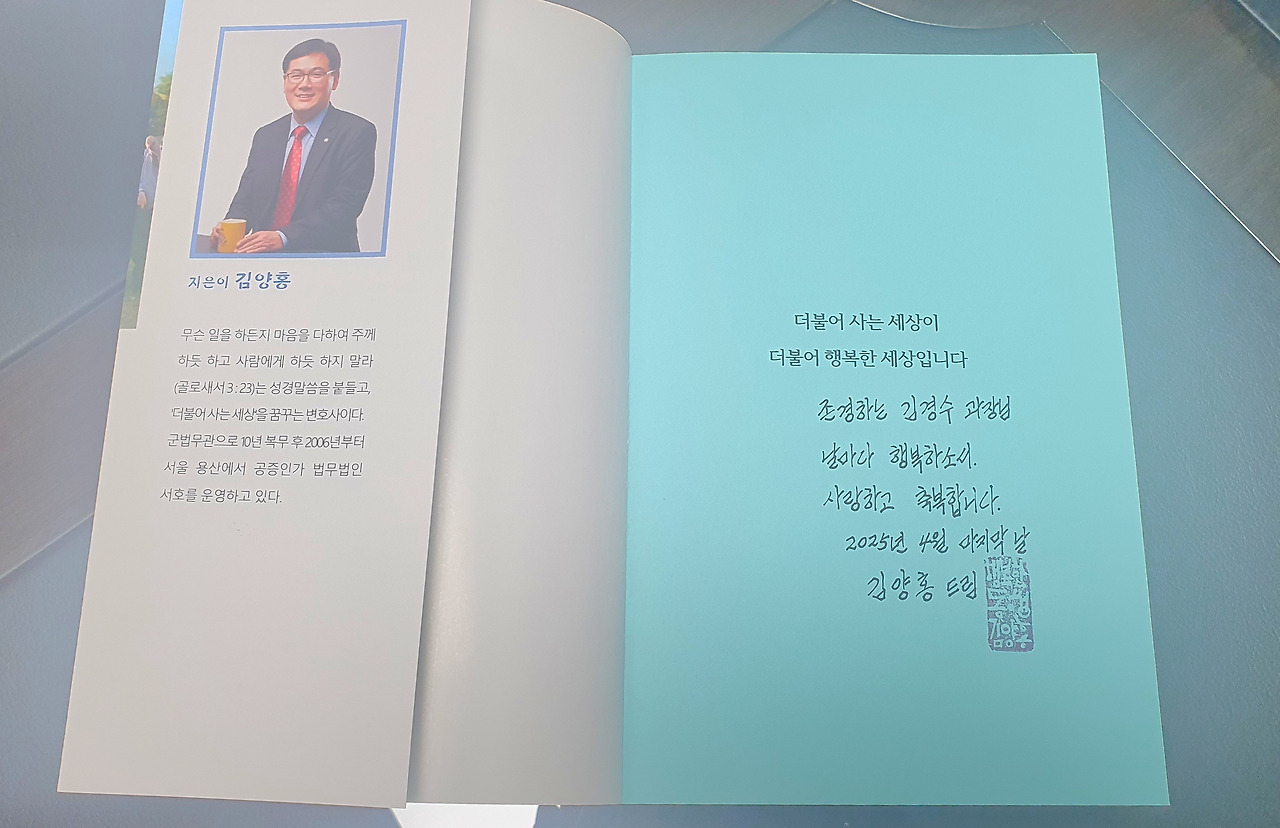 지은이 김양홍
무슨 일을 하든지 마음을 다하여 주께
하듯 하고 사람에게 하듯 하지 말라
(골로새서 3 : 23)는 성경말씀을 붙들고,
'더불어 사는 세상'을 꿈꾸는 변호사이다.
군법무관으로 10년 복무 후 2006년부터
서울 용산에서 공증인가 법무법인
서호를 운영하고 있다.
더불어 사는 세상이
더불어 행복한 세상입니다
존경하는 김경수 과장님
날마다 행복하소서.
사랑하고 축복합니다.
2025년 4월 마지막 날
김양홍 드림
김양홍